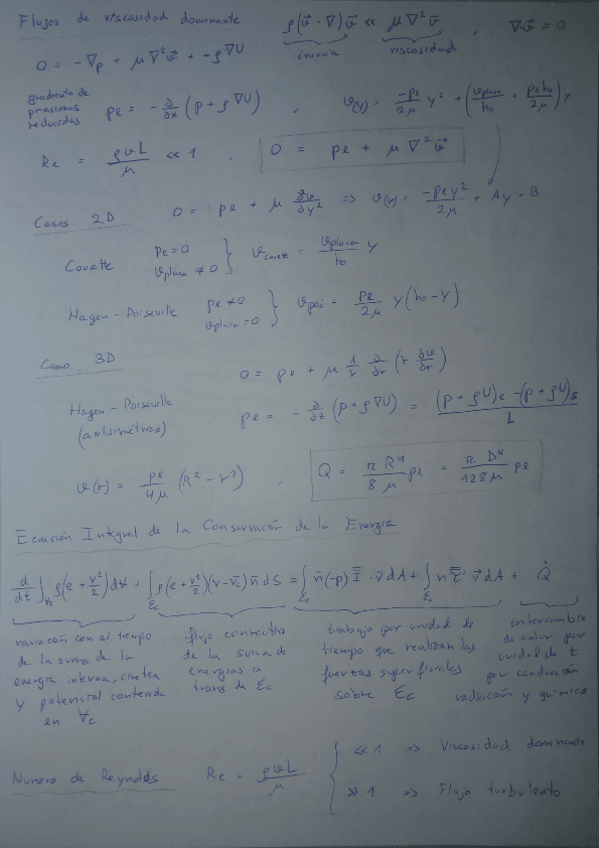 Flujos de viscosidad dominante ρ(v⃗·∇)v⃗ << μ∇²v⃗ , ∇v⃗ = 0
inercia viscosidad
0 = -∇p + μ∇²v⃗ + -ρ∇U
gradiente de presiones reducidas pe = -∂/∂x (p + ρ∇U) , v(y) = -pe/2μ y² + (vplaca/ho + pe ho/2μ) y
Re = ρvL/μ << 1 . 0 = pe + μ∇²v⃗
Casos 2D 0 = pe + μ ∂²v/∂y² ⇒ v(y) = -pe y²/2μ + Ay + B
Couette pe = 0 vplaca ≠ 0 } vcouette = vplaca/ho y
Hagen-Poiseuille pe ≠ 0 vplaca = 0 } vpoi = pe/2μ y(ho - y)
Caso 3D 0 = pe + μ 1/r ∂/∂r (r ∂v/∂r)
Hagen-Poiseuille (axisimétrico) pe = -∂/∂z (p + ρ∇U) = (p + ρU)e - (p + ρU)s / L
v(r) = pe/4μ (R² - r²) . Q = πR⁴/8μ pe = πD⁴/128μ pe
Ecuación Integral de la Conservación de la Energía
d/dt ∫Vc ρ(e + v²/2)dV + ∫Σc ρ(e + v²/2)(v - vc) n̄ dS = ∫Σc n̄(-p) I̿ · v dA + ∫Σc n τ̿' v⃗ dA + Q̇
variación con el tiempo de la suma de la energía interna, cinética y potencial contenida en Vc
flujo convectivo de la suma de energías a través de Σc
trabajo por unidad de tiempo que realizan las fuerzas superficiales sobre Σc
intercambio de calor por unidad de t por conducción radiación y química
Número de Reynolds Re = ρvL/μ { << 1 ⇒ Viscosidad dominante
>> 1 ⇒ Flujo turbulento